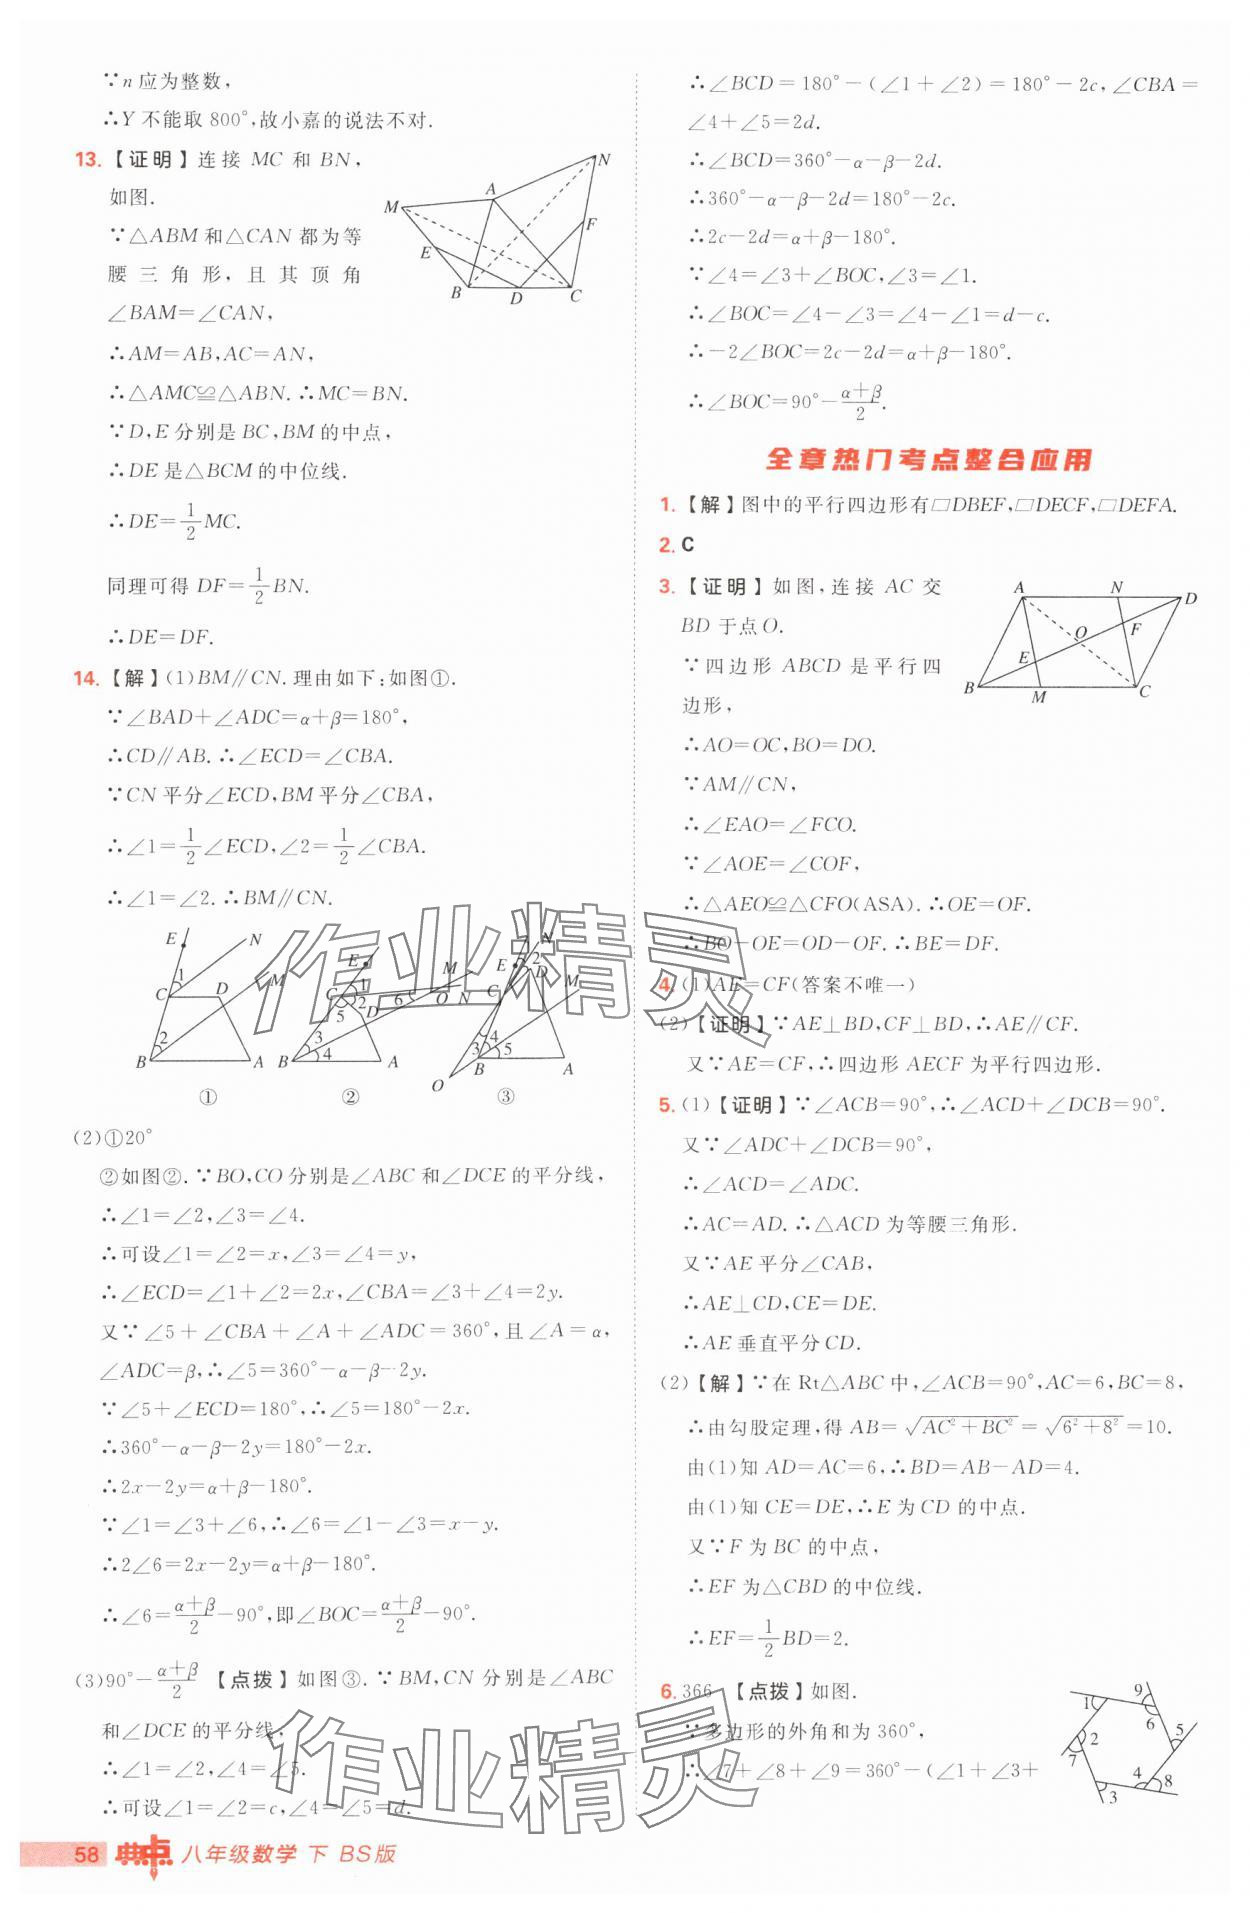 ∵n应为整数，
∴Y不能取800°，故小嘉的说法不对．
13．【证明】连接 MC 和 BN，
如图．
∵△ABM和△CAN都为等
腰三角形，且其顶角
∠BAM＝∠CAN，
∴AM＝AB，AC＝AN，
∴△AMC≌△ABN．∴MC＝BN．
∵D，E分别是BC，BM的中点，
∴DE是△BCM的中位线．
∴DE＝1/2 MC．
同理可得 DF＝1/2 BN．
∴DE＝DF．
M A N E F B D C
14．【解】(1)BM∥CN．理由如下：如图①．
∵∠BAD＋∠ADC＝α＋β＝180°，
∴CD∥AB．∴∠ECD＝∠CBA．
∵CN平分∠ECD，BM平分∠CBA，
∴∠1＝1/2∠ECD，∠2＝1/2∠CBA．
∴∠1＝∠2．∴BM∥CN．
E N 1 C D M 2 B A
E 1 C 2 5 D 6 M O N 3 4 B A
N E 2 D C M 3 4 5 O B A
① ② ③
(2)①20°
②如图②．∵BO，CO分别是∠ABC和∠DCE的平分线，
∴∠1＝∠2，∠3＝∠4．
∴可设∠1＝∠2＝x，∠3＝∠4＝y，
∴∠ECD＝∠1＋∠2＝2x，∠CBA＝∠3＋∠4＝2y．
又∵∠5＋∠CBA＋∠A＋∠ADC＝360°，且∠A＝α，
∠ADC＝β，∴∠5＝360°－α－β－2y．
∵∠5＋∠ECD＝180°，∴∠5＝180°－2x．
∴360°－α－β－2y＝180°－2x．
∴2x－2y＝α＋β－180°．
∵∠1＝∠3＋∠6，∴∠6＝∠1－∠3＝x－y．
∴2∠6＝2x－2y＝α＋β－180°．
∴∠6＝(α＋β)/2－90°，即∠BOC＝(α＋β)/2－90°．
(3)90°－(α＋β)/2 【点拨】如图③．∵BM，CN分别是∠ABC
和∠DCE的平分线，
∴∠1＝∠2，∠4＝∠5．
∴可设∠1＝∠2＝c，∠4＝∠5＝d．
∴∠BCD＝180°－(∠1＋∠2)＝180°－2c，∠CBA＝
∠4＋∠5＝2d．
∴∠BCD＝360°－α－β－2d．
∴360°－α－β－2d＝180°－2c．
∴2c－2d＝α＋β－180°．
∵∠4＝∠3＋∠BOC，∠3＝∠1．
∴∠BOC＝∠4－∠3＝∠4－∠1＝d－c．
∴－2∠BOC＝2c－2d＝α＋β－180°．
∴∠BOC＝90°－(α＋β)/2．
全章热门考点整合应用
1．【解】图中的平行四边形有▱DBEF，▱DECF，▱DEFA．
2．C
3．【证明】如图，连接 AC 交
BD于点O．
∵四边形 ABCD 是平行四
边形，
∴AO＝OC，BO＝DO．
∵AM∥CN，
∴∠EAO＝∠FCO．
∵∠AOE＝∠COF，
∴△AEO≌△CFO(ASA)．∴OE＝OF．
∴BO－OE＝OD－OF．∴BE＝DF．
A N D O F E B M C
4．(1)AE＝CF(答案不唯一)
(2)【证明】∵AE⊥BD，CF⊥BD，∴AE∥CF．
又∵AE＝CF，∴四边形AECF为平行四边形．
5．(1)【证明】∵∠ACB＝90°，∴∠ACD＋∠DCB＝90°．
又∵∠ADC＋∠DCB＝90°，
∴∠ACD＝∠ADC．
∴AC＝AD．∴△ACD为等腰三角形．
又∵AE平分∠CAB，
∴AE⊥CD，CE＝DE．
∴AE垂直平分CD．
(2)【解】∵在Rt△ABC中，∠ACB＝90°，AC＝6，BC＝8，
∴由勾股定理，得 AB＝√(AC²＋BC²)＝√(6²＋8²)＝10．
由(1)知AD＝AC＝6，∴BD＝AB－AD＝4．
由(1)知CE＝DE，∴E为CD的中点．
又∵F为BC的中点，
∴EF为△CBD的中位线．
∴EF＝1/2 BD＝2．
6．366 【点拨】如图．
∵多边形的外角和为360°，
∴∠7＋∠8＋∠9＝360°－(∠1＋∠3＋
1 9 6 5 2 7 4 8 3
作业精灵
作业精灵
58 典中点 八年级数学 下 BS版